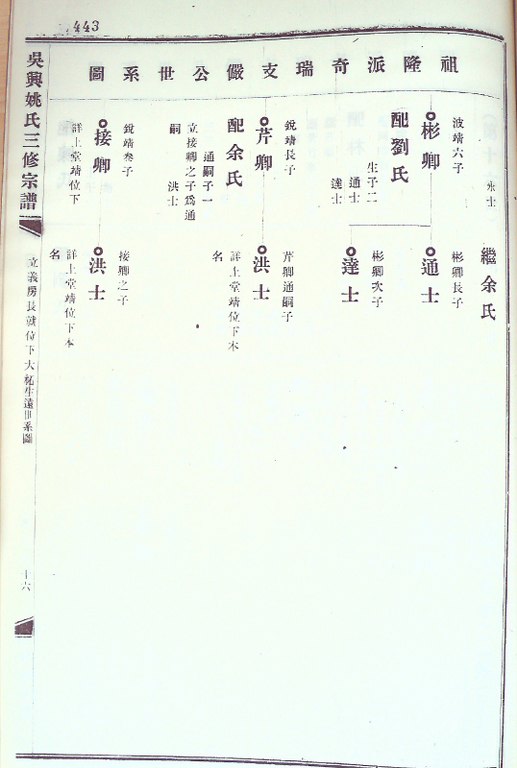 443
祖隆派奇瑞支儼公世系圖
永士
繼余氏
波靖六子
彬卿
彬卿長子
通士
生子二
通士
達士
配劉氏
彬卿次子
達士
銳靖長子
芹卿
芹卿通嗣子
洪士
配余氏
通嗣子一
立接卿之子為通
嗣
洪士
詳上堂靖位下本
名
銳靖叁子
接卿
接卿之子
洪士
詳上堂靖位下
詳上堂靖位下本
名
吳興姚氏三修宗譜
立義房長
位下大
生遠
系圖
十六